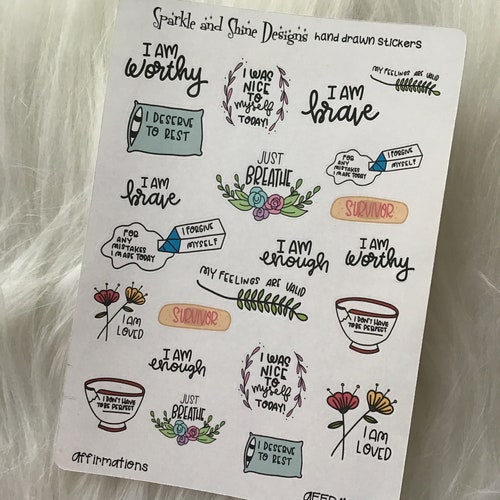 Sparkle and Shine Designs hand drawn stickers
I AM
worthy
I WAS
NICE
TO
myself
TODAY!
I AM
brave
MY FEELINGS ARE VALID
I DESERVE
TO REST
JUST
BREATHE
FOR
ANY
MISTAKES
I MADE TODAY
I FORGIVE
MYSELF
I AM
brave
SURVIVOR
FOR
ANY
MISTAKES
I MADE TODAY
I FORGIVE
MYSELF
I AM
enough
I AM
worthy
MY FEELINGS ARE VALID
I AM
LOVED
SURVIVOR
I DON'T HAVE
TO BE PERFECT
I AM
enough
I WAS
NICE
TO
myself
TODAY!
I DON'T HAVE
TO BE PERFECT
JUST
BREATHE
I DESERVE
TO REST
I AM
LOVED
affirmations